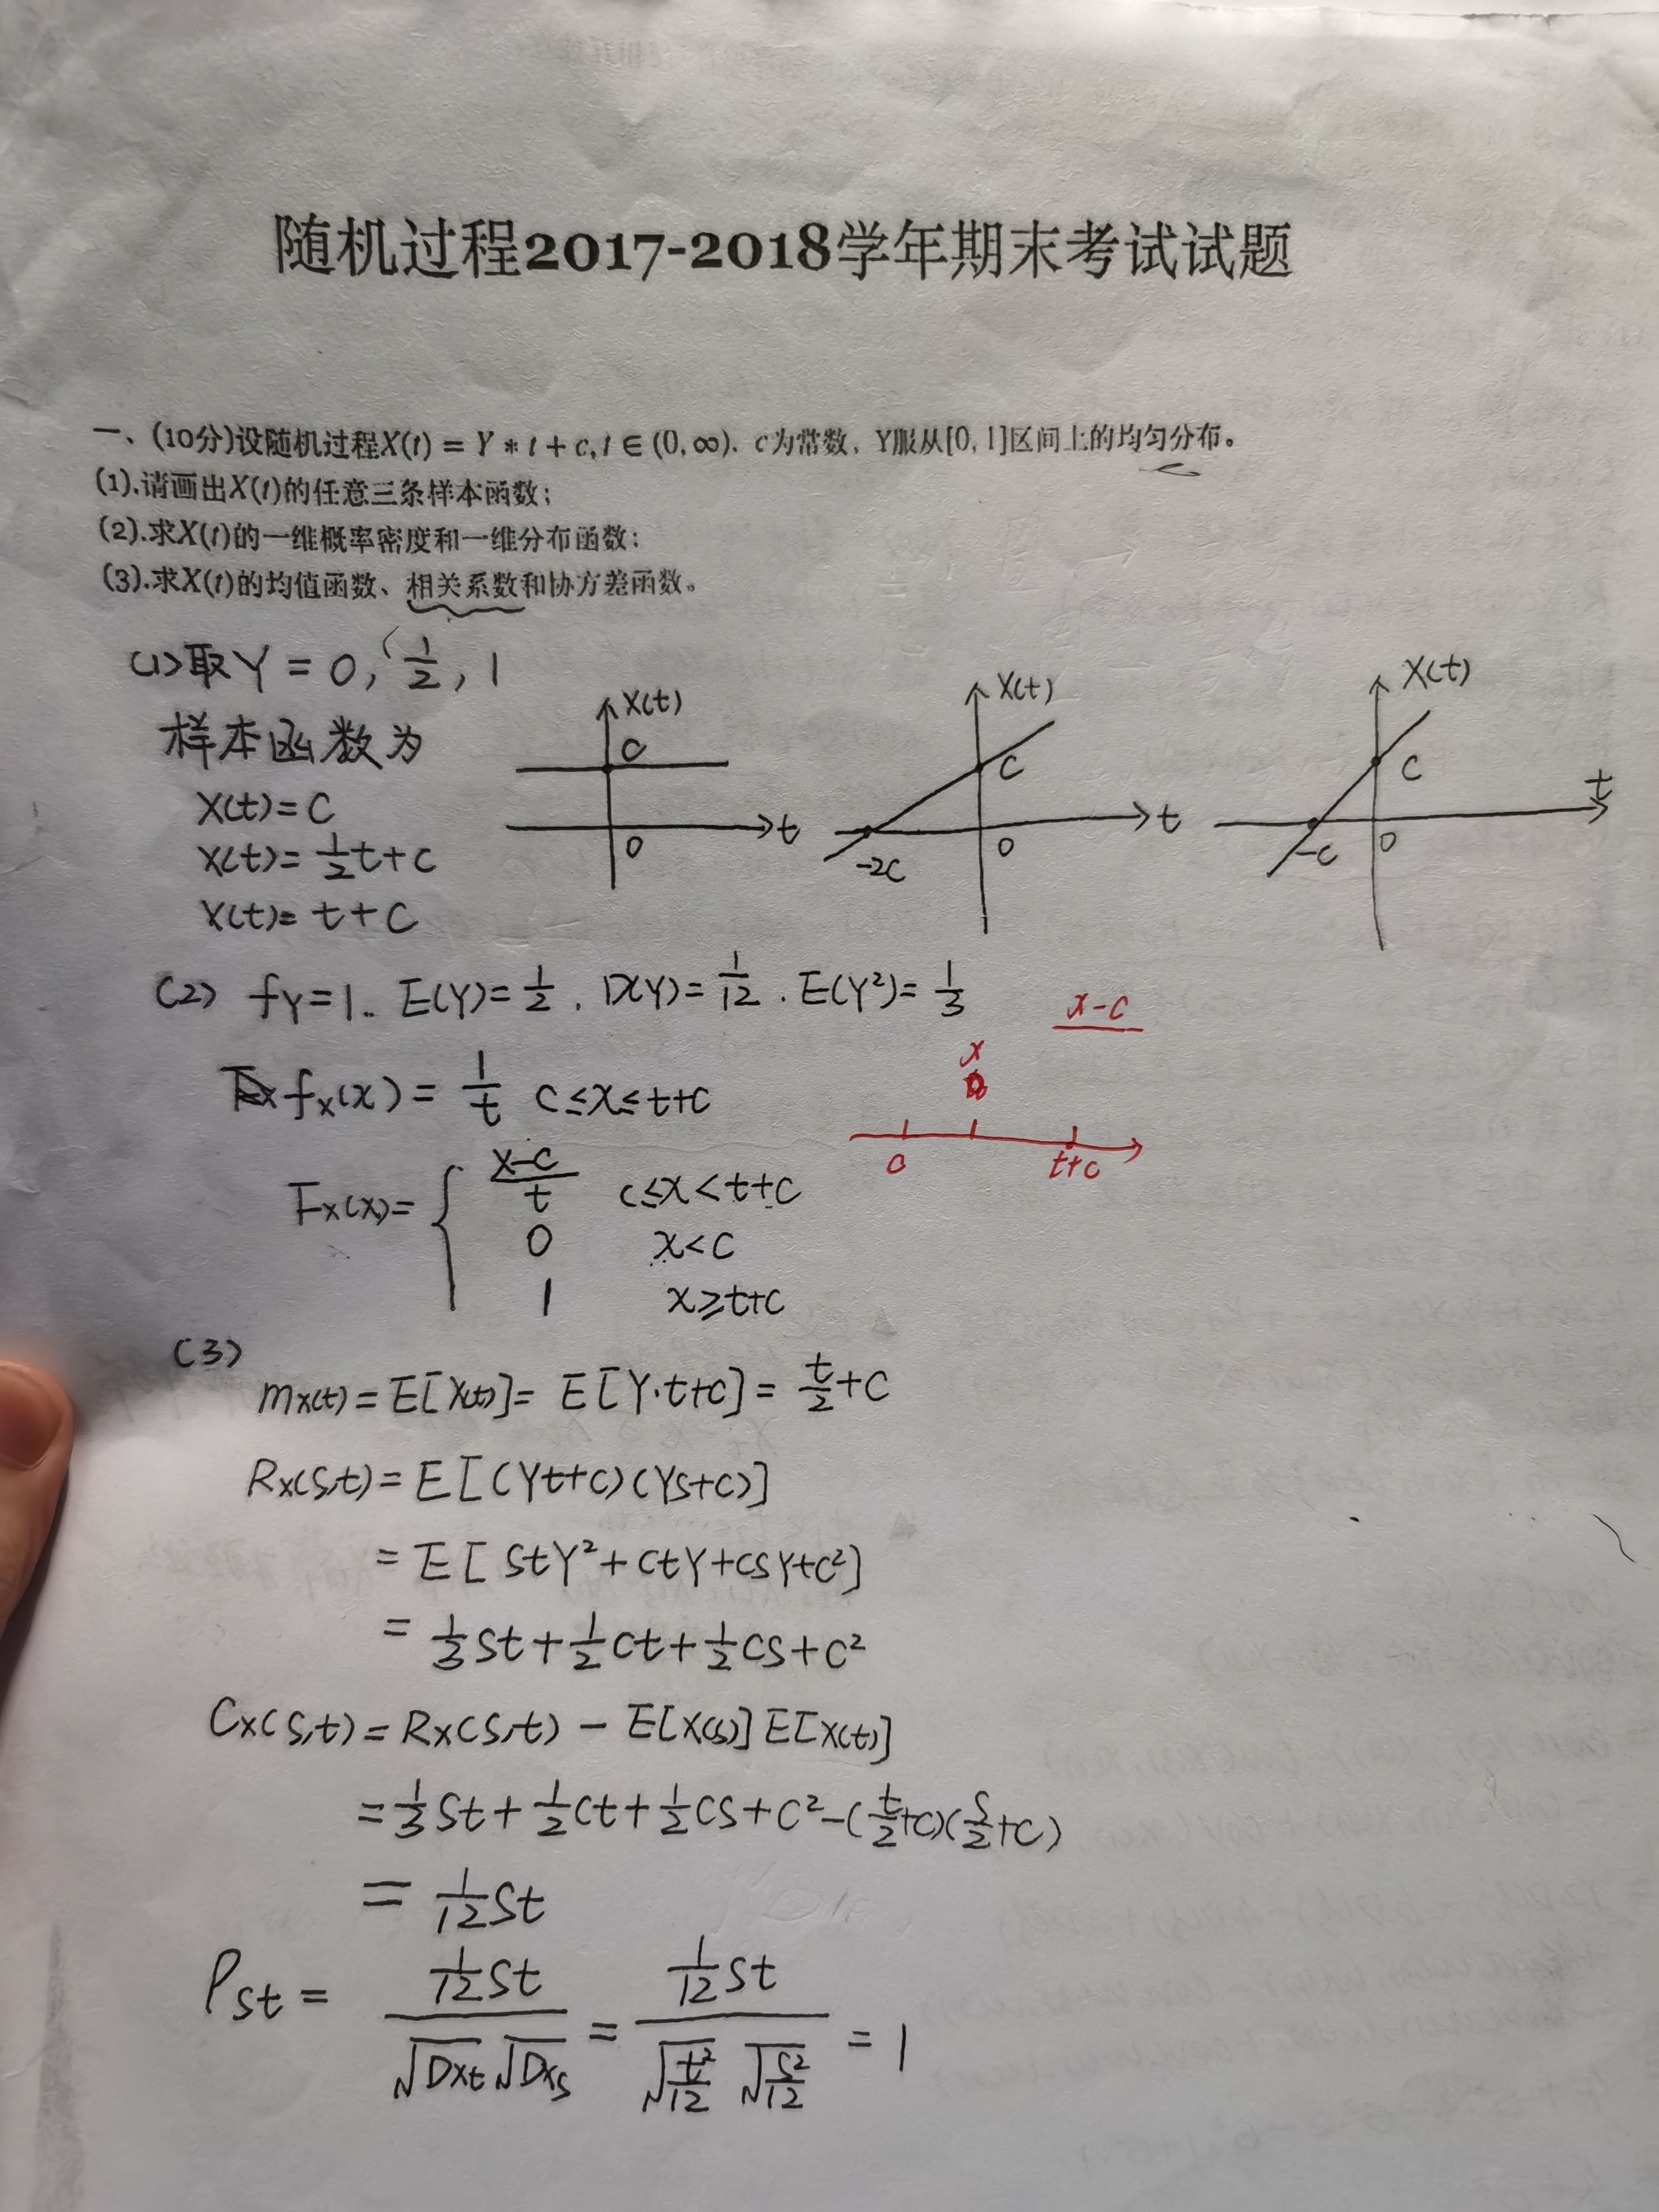 随机过程2017-2018学年期末考试试题
一、(10分)设随机过程X(t) = Y * t + c, t ∈ (0, ∞). c为常数, Y服从[0, 1]区间上的均匀分布。
(1).请画出X(t)的任意三条样本函数;
(2).求X(t)的一维概率密度和一维分布函数;
(3).求X(t)的均值函数、相关系数和协方差函数。
(1)取Y = 0, 1/2, 1
样本函数为
X(t)=C
X(t)=1/2 t+C
X(t)= t+C
X(t)
C
t
0
X(t)
C
t
0
-2C
X(t)
C
t
0
-C
(2) fY=1. E(Y)=1/2 . D(Y)=1/12 . E(Y²)=1/3
x-c
x
fx(x) = 1/t C≤x≤t+C
c
t+c
Fx(x)= { (x-c)/t C≤x<t+C
0 x<C
1 x≥t+C
(3)
mx(t) = E[X(t)]= E[Y·t+C] = t/2+C
Rx(s,t) = E[(Yt+C)(Ys+C)]
= E[stY²+ctY+csY+C²]
= 1/3 st+1/2 ct+1/2 cs+C²
Cx(s,t)=Rx(s,t) - E[X(s)]E[X(t)]
=1/3 st+1/2 ct+1/2 cs+C²-(t/2+C)(s/2+C)
= 1/12 st
ρst = (1/12 st)/(√DXt √DXs) = (1/12 st)/(√(t²/12) √(s²/12)) = 1